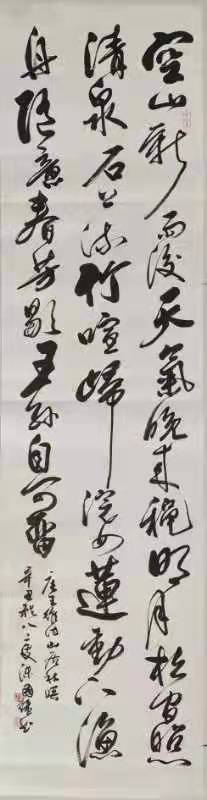 空山新雨後天氣晚來穐明月松間照
清泉石上流竹喧歸浣女蓮動下漁
舟隨意春芳歇王孫自可留
唐王維詩山居秋暝
辛丑秋八三叟